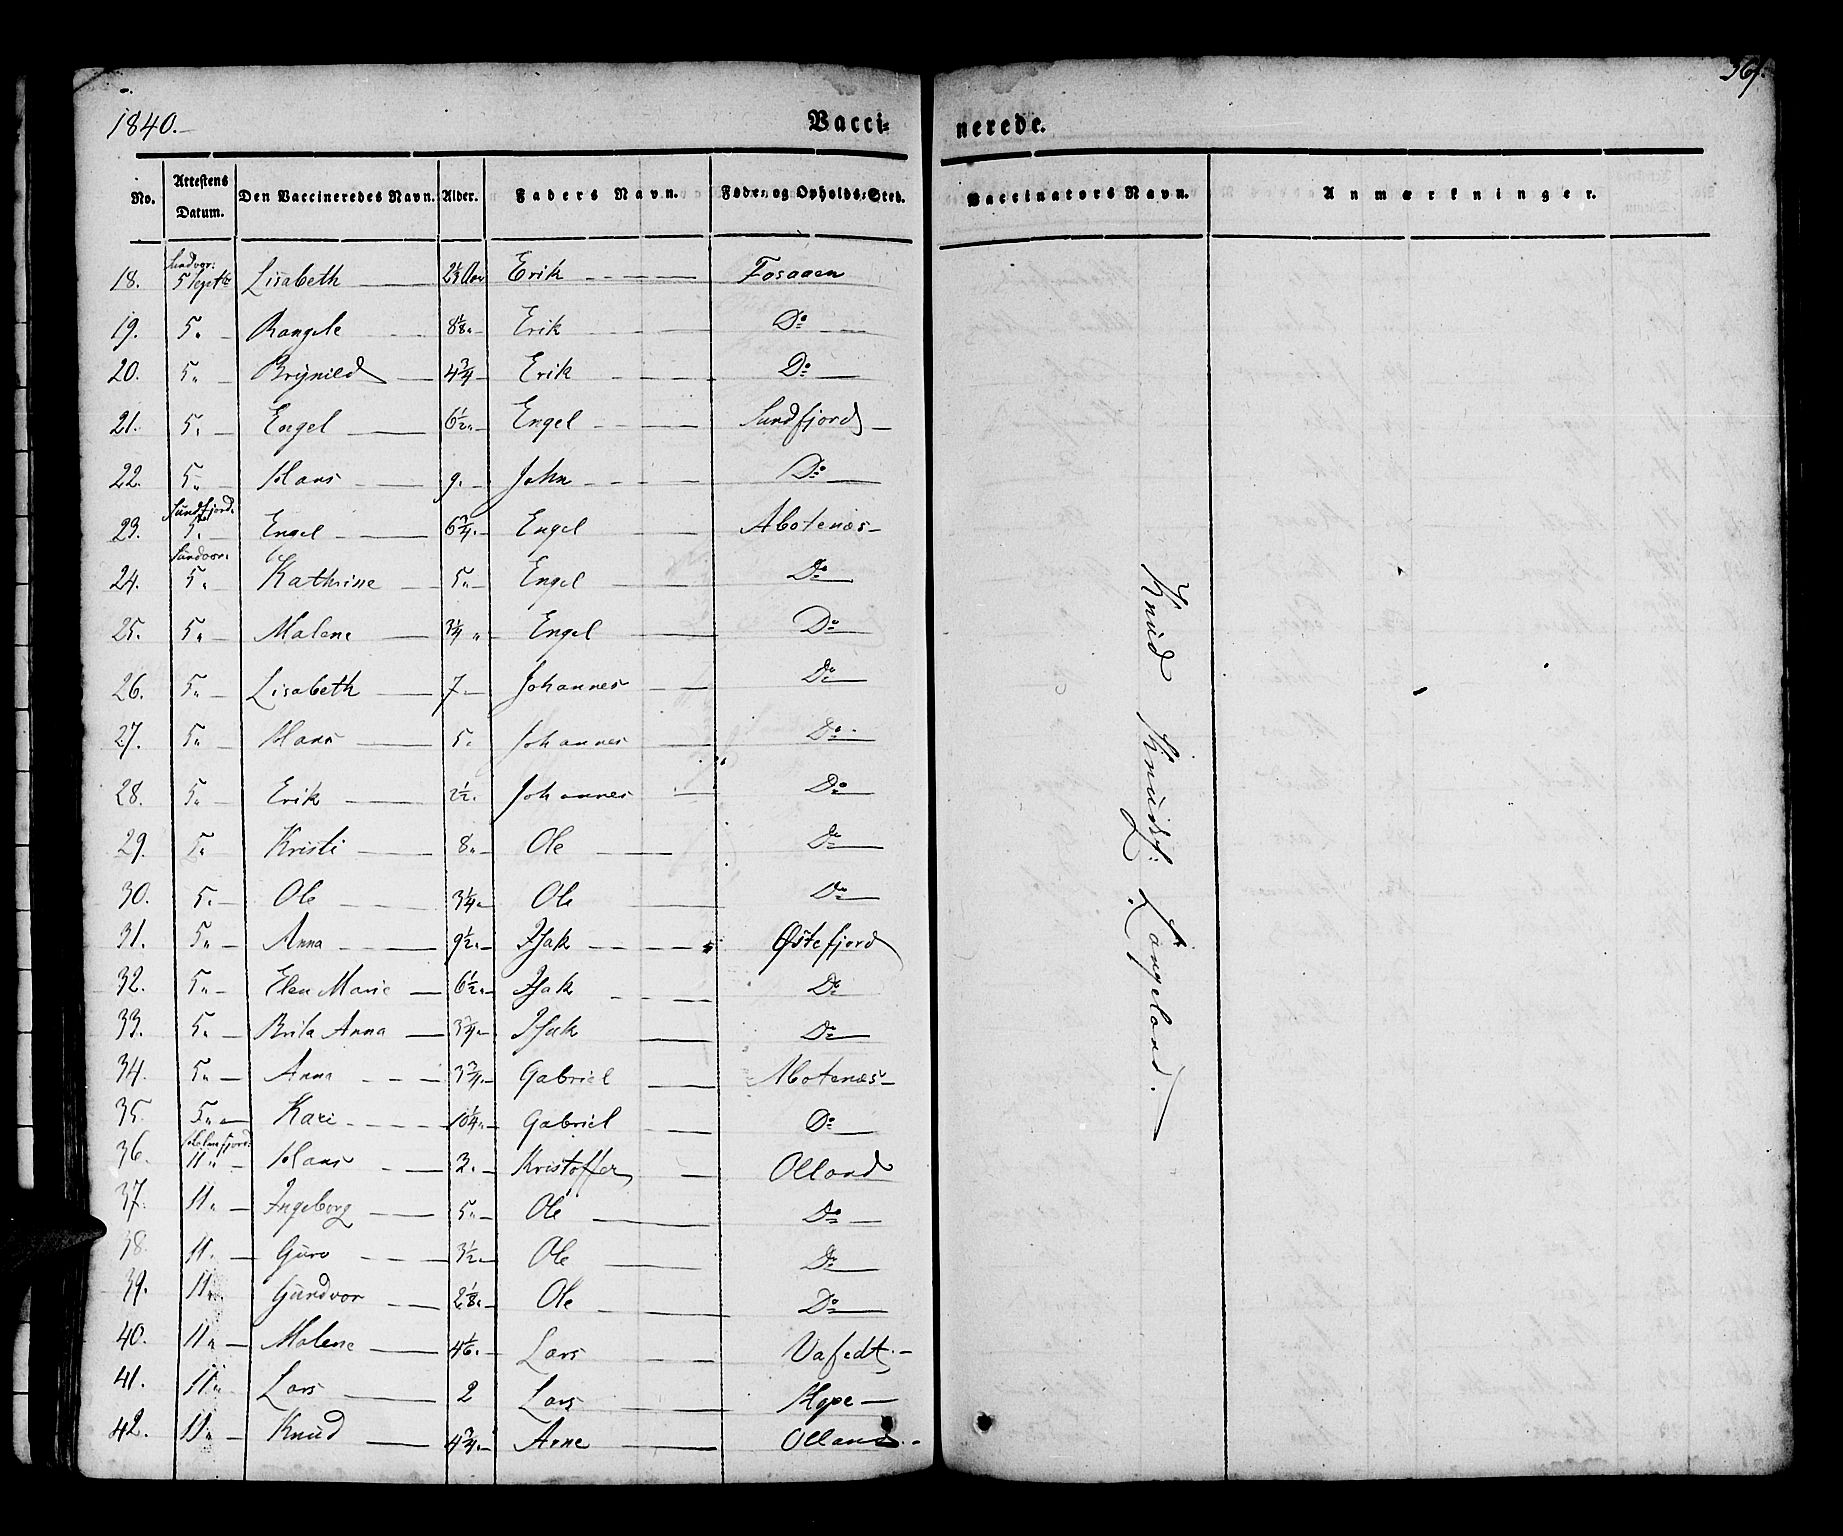 1840.
Vaccinerede.
No. Attestens Datum. Den Vaccineredes Navn. Alder. Faders Navn. Føde- og Opholds-Sted. Vaccinators Navn. Anmærkninger.
18. 5 Septbr Lisabeth Erik Fosaaen
19. 5. Rangele 8 1/8. Erik Do
20. 5. Brynild 4 3/4 Erik Do
21. 5. Engel 6 1/2. Engel Sundfjord
22. 5. Hans 9. John Do
Sundfjord.
23. 5. Engel 6 3/4. Engel Abotenæs
24. 5. Kathrine 5. Engel Do
25. 5. Malene 3 1/4 Engel Do
26. 5. Lisabeth 7 Johannes Do
27. 5. Hans 5. Johannes Do
28. 5. Erik 2 1/2. Johannes Do
29. 5. Kristi 8. Ole Do
30. 5. Ole 3 1/4. Ole Do
31. 5. Anna 9 1/2. Isak Østefjord
32. 5. Elen Marie 6 1/2. Isak Do
33. 5. Brita Anna 3 3/4. Isak Do
34. 5. Anna 3 3/4. Gabriel Abotenæs
35. 5. Kari 10 1/4. Gabriel Do
36. 11. Hans 3. Kristoffer Olland
37. 11. Ingeborg 5. Ole Do
38. 11. Guro 3 1/2. Ole Do
39. 11. Gundvor 2 1/8. Ole Do
40. 11. Malene 4 1/6. Lars
41. 11. Lars 2 Lars Hope
42. 11. Knud 4 3/4. Arne Olland
Knud Knudsf: Langeland.